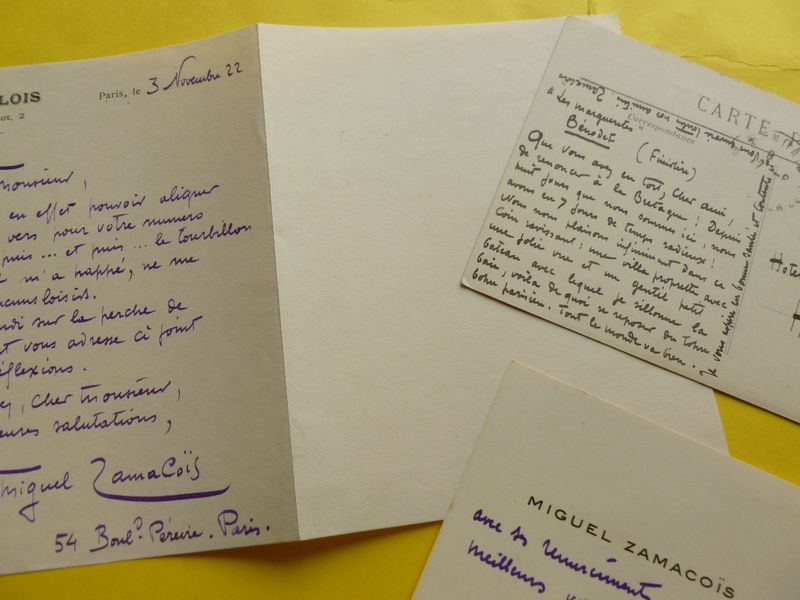 LOIS
ot, 2
Paris, le 3 Novembre 22
Monsieur,
en effet pouvoir aligner
vers pour votre numero
puis ... et puis ... le tourbillon
m'a happé, ne me
loisirs.
sur la perche de
et vous adresse ci joint
réflexions.
Cher Monsieur,
salutations,
Miguel Zamacoïs
54 Boul.d Péreire. Paris.
CARTE
Correspondance
"Les marguerites"
Bénodet
(Finistère)
Que vous avez eu tort, cher ami,
de renoncer à la Bretagne ! Depuis
huit jours que nous sommes ici, nous
avons eu 7 jours de temps radieux !
Nous nous plaisons infiniment dans ce
coin ravissant : une villa proprette avec
une jolie vue et un gentil petit
bateau avec lequel je sillonne la
baie, voilà de quoi se reposer du tohu
bohu parisien. Tout le monde va bien.
Je vous espère en bonne santé et
Zamacoïs
Hotel
MIGUEL ZAMACOÏS
avec ses remerciements
meilleurs